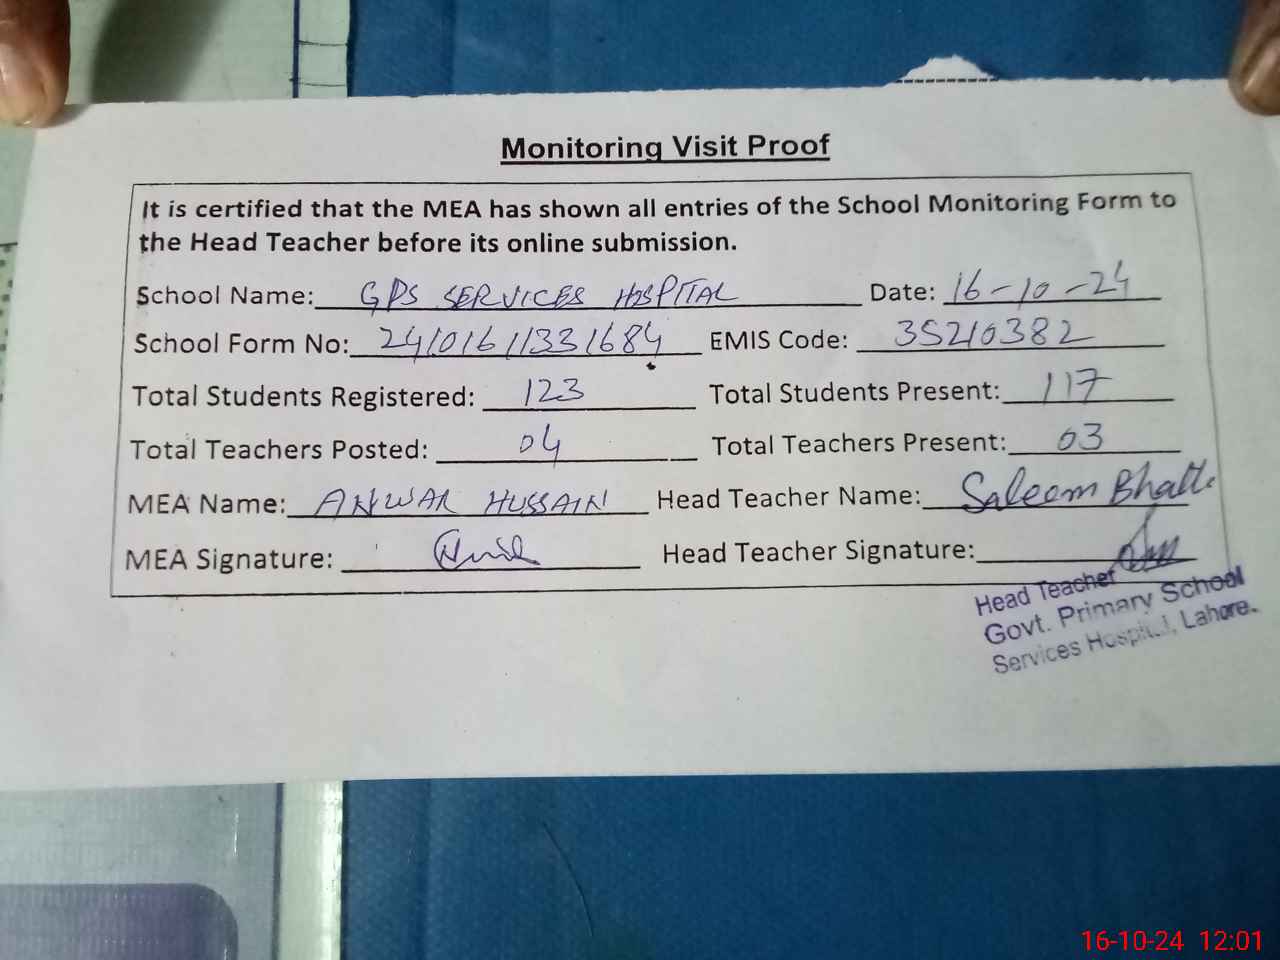 Monitoring Visit Proof
It is certified that the MEA has shown all entries of the School Monitoring Form to
the Head Teacher before its online submission.
School Name: GPS SERVICES HOSPITAL Date: 16-10-24
School Form No: 24101611331684 EMIS Code: 35210382
Total Students Registered: 123 Total Students Present: 117
Total Teachers Posted: 04 Total Teachers Present: 03
MEA Name: ANWAR HUSSAIN Head Teacher Name: Saleem Bhatti
MEA Signature: Head Teacher Signature:
Head Teacher
Govt. Primary School
Services Hospital, Lahore.
16-10-24 12:01